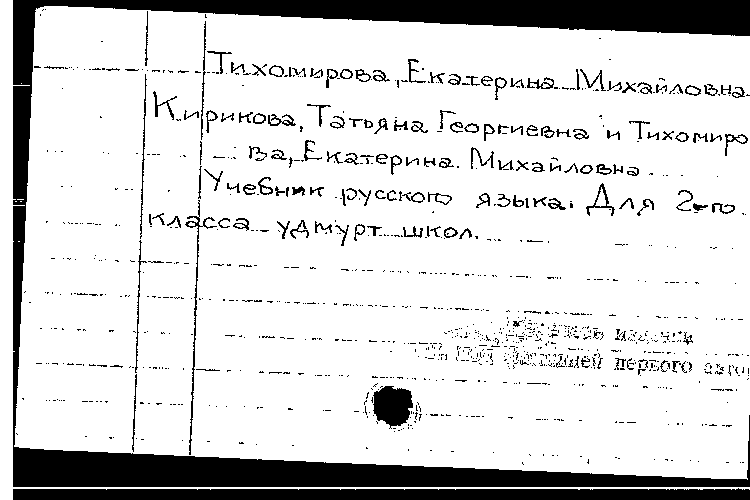 Тихомирова, Екатерина Михайловна
Кирикова, Татьяна Георгиевна и Тихомиро
ва, Екатерина Михайловна.
Учебник русского языка. Для 2-го
класса удмурт школ.
первого авто